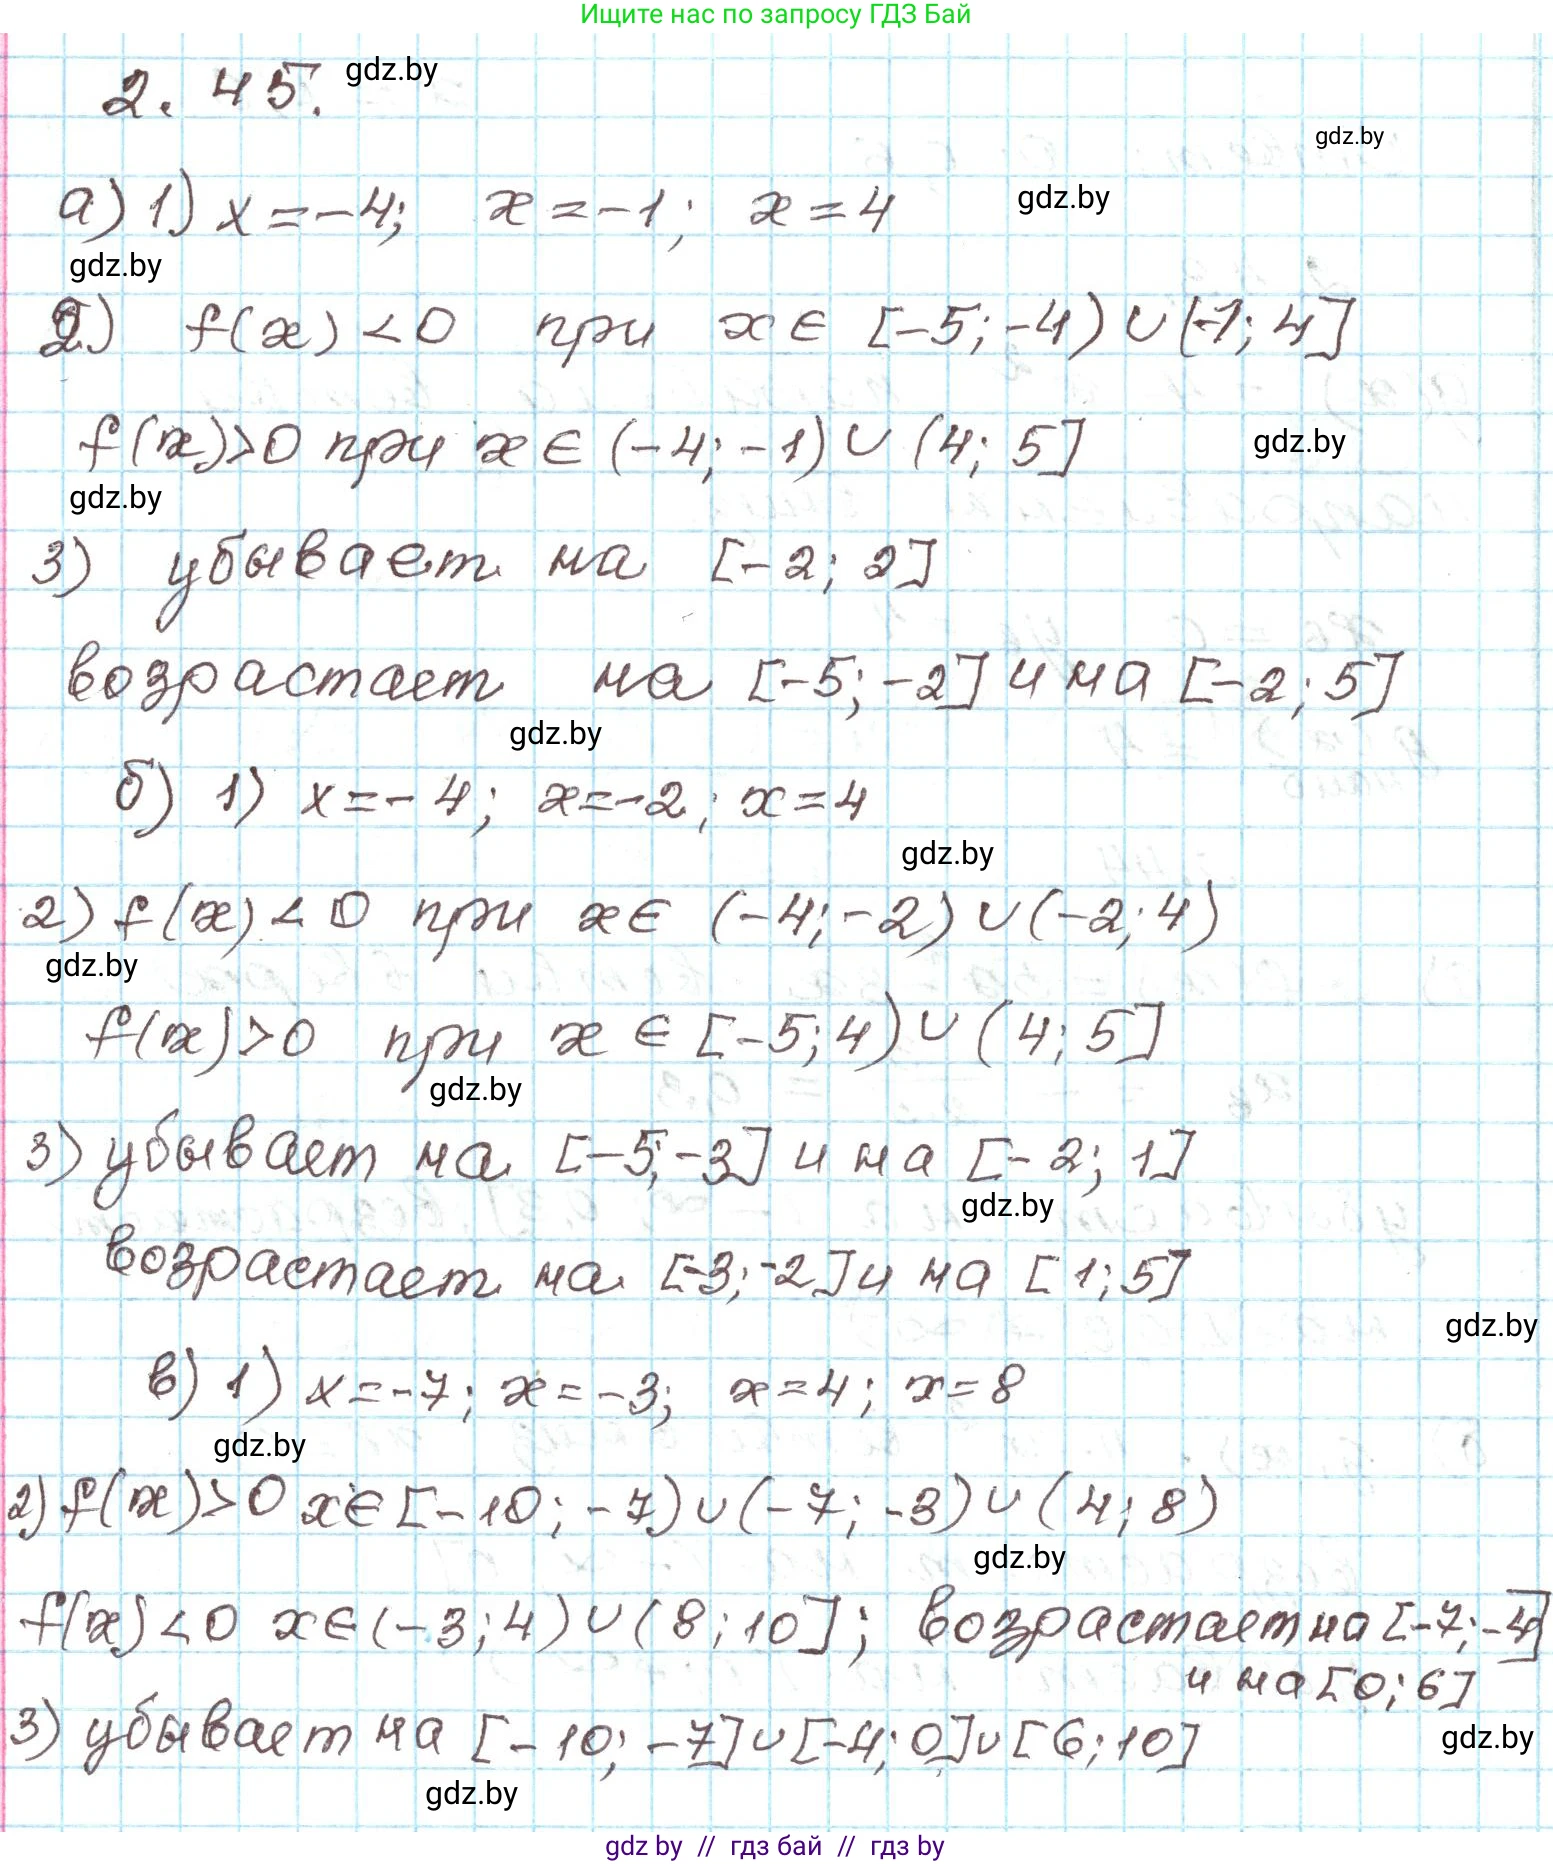 Ищите нас по запросу ГДЗ Бай
2.45. gdz.by
gdz.by
а) 1) x = -4; x = -1; x = 4 gdz.by
gdz.by
2) f(x) < 0 при x ∈ [-5; -4) ∪ (-1; 4]
f(x) > 0 при x ∈ (-4; -1) ∪ (4; 5] gdz.by
gdz.by
3) убывает на [-2; 2]
возрастает на [-5; -2] и на [-2; 5]
gdz.by
б) 1) x = -4; x = -2; x = 4
gdz.by
2) f(x) < 0 при x ∈ (-4; -2) ∪ (-2; 4)
gdz.by
f(x) > 0 при x ∈ [-5; 4) ∪ (4; 5]
gdz.by
3) убывает на [-5; -3] и на [-2; 1]
gdz.by
возрастает на [-3; -2] и на [1; 5]
gdz.by
в) 1) x = -7; x = -3; x = 4; x = 8
gdz.by
2) f(x) > 0 x ∈ [-10; -7) ∪ (-7; -3) ∪ (4; 8)
gdz.by
f(x) < 0 x ∈ (-3; 4) ∪ (8; 10]; возрастает на [-7; -4]
и на [0; 6]
3) убывает на [-10; -7] ∪ [-4; 0] ∪ [6; 10] gdz.by
gdz.by
gdz by // гдз бай // гдз by